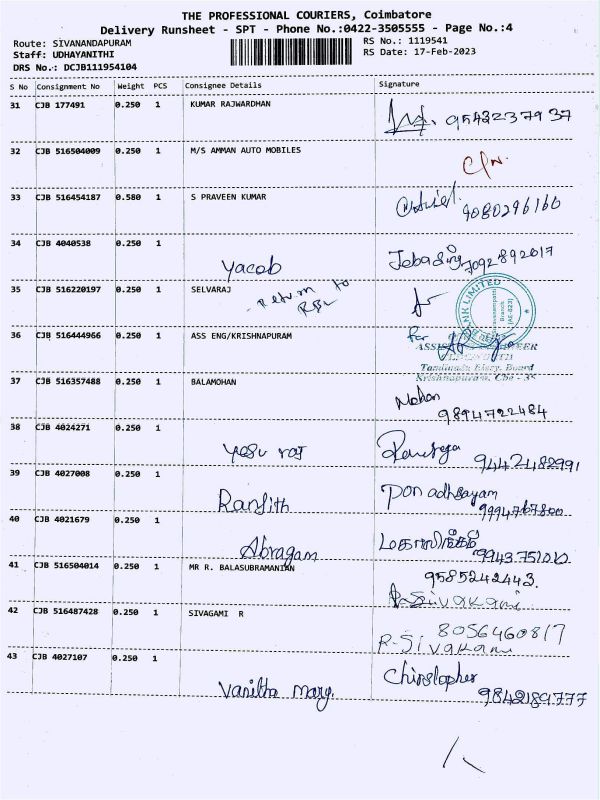 THE PROFESSIONAL COURIERS, Coimbatore
Delivery Runsheet - SPT - Phone No.:0422-3505555 - Page No.:4
Route: SIVANANDAPURAM
Staff: UDHAYANITHI
DRS No.: DCJB111954104
RS No.: 1119541
RS Date: 17-Feb-2023
S No Consignment No Weight PCS Consignee Details Signature
31 CJB 177491 0.250 1 KUMAR RAJWARDHAN
32 CJB 516504009 0.250 1 M/S AMMAN AUTO MOBILES
33 CJB 516454187 0.580 1 S PRAVEEN KUMAR
9080296160
34 CJB 4040538 0.250 1
Yacob 7092892017
35 CJB 516220197 0.250 1 SELVARAJ
Return to
36 CJB 516444966 0.250 1 ASS ENG/KRISHNAPURAM
For
Tamilnadu Elecy. Board
Krishnapuram, Cbe - 35
37 CJB 516357488 0.250 1 BALAMOHAN
Mohan
9894722484
38 CJB 4024271 0.250 1
Yesu raj 9442482991
39 CJB 4027008 0.250 1
Ranjith
9994767800
40 CJB 4021679 0.250 1
Abragam
41 CJB 516504014 0.250 1 MR R. BALASUBRAMANIAN
9585242443.
R. Sivakami
42 CJB 516487428 0.250 1 SIVAGAMI R
8056460817
R. Sivakami
43 CJB 4027107 0.250 1
Vanitha mary. Christopher
9842189777